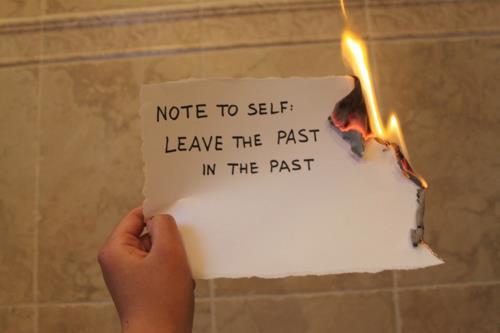 NOTE TO SELF:
LEAVE THE PAST
IN THE PAST